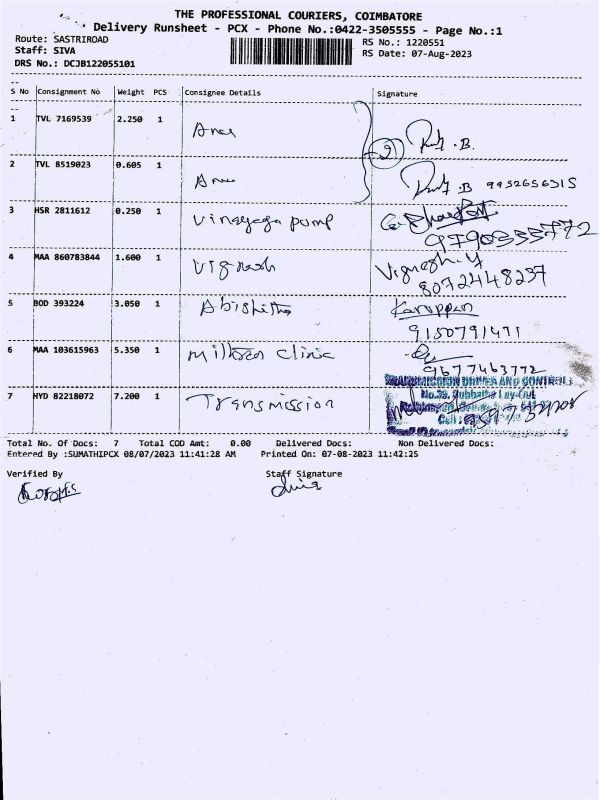 THE PROFESSIONAL COURIERS, COIMBATORE
Delivery Runsheet - PCX - Phone No.:0422-3505555 - Page No.:1
Route: SASTRIROAD
RS No.: 1220551
Staff: SIVA
RS Date: 07-Aug-2023
DRS No.: DCJB122055101
S No Consignment No Weight PCS Consignee Details Signature
1 TVL 7169539 2.250 1 B.
2 TVL 8519023 0.605 1 B 9952656315
3 HSR 2811612 0.250 1 Vinayaga pump
9790333772
4 MAA 860783844 1.600 1 Vignesh Vignesh.Y
8072448297
5 BOD 393224 3.050 1 Abishitha Karuppan
9150791471
6 MAA 103615963 5.350 1 Clinic
9677463772
7 HYD 82218072 7.200 1 Transmission TRANSMISSION DRIVES AND CONTROLS
Total No. Of Docs: 7 Total COD Amt: 0.00 Delivered Docs: Non Delivered Docs:
Entered By :SUMATHIPCX 08/07/2023 11:41:28 AM Printed On: 07-08-2023 11:42:25
Verified By Staff Signature